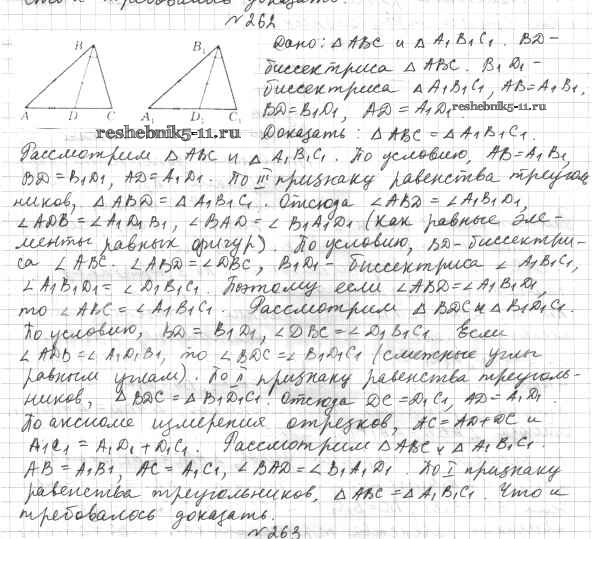 что и требовалось доказать.
№ 262
B B₁ Дано: △ ABC и △ A₁B₁C₁. BD-
биссектриса △ ABC. B₁D₁-
биссектриса △ A₁B₁C₁, AB=A₁B₁,
A D C A₁ D₁ C₁ BD=B₁D₁, AD=A₁D₁ reshebnik5-11.ru
reshebnik5-11.ru Доказать: △ ABC = △ A₁B₁C₁.
Рассмотрим △ ABC и △ A₁B₁C₁. По условию, AB=A₁B₁,
BD=B₁D₁, AD=A₁D₁. По III признаку равенства треуголь
ников, △ ABD = △ A₁B₁C₁. Отсюда ∠ABD = ∠A₁B₁D₁,
∠ADB=∠A₁D₁B₁, ∠BAD=∠B₁A₁D₁ (как равные эле-
менты равных фигур). По условию, BD-биссектри-
са ∠ABC. ∠ABD=∠DBC, B₁D₁- биссектриса ∠A₁B₁C₁,
∠A₁B₁D₁ = ∠D₁B₁C₁. Поэтому если ∠ABD=∠A₁B₁D₁,
то ∠ABC=∠A₁B₁C₁. Рассмотрим △ BDC и △ B₁D₁C₁.
По условию, BD = B₁D₁, ∠DBC=∠D₁B₁C₁. Если
∠ADB=∠A₁D₁B₁, то ∠BDC=∠B₁D₁C₁ (смежные углы
равным углам). По II признаку равенства треуголь-
ников, △ BDC = △ B₁D₁C₁. Отсюда DC=D₁C₁, AD=A₁D₁.
По аксиоме измерения отрезков, AC=AD+DC и
A₁C₁ = A₁D₁+D₁C₁. Рассмотрим △ABC и △ A₁B₁C₁.
AB=A₁B₁, AC=A₁C₁, ∠BAD=∠B₁A₁D₁. По I признаку
равенства треугольников, △ ABC=△ A₁B₁C₁. Что и
требовалось доказать.
№ 263